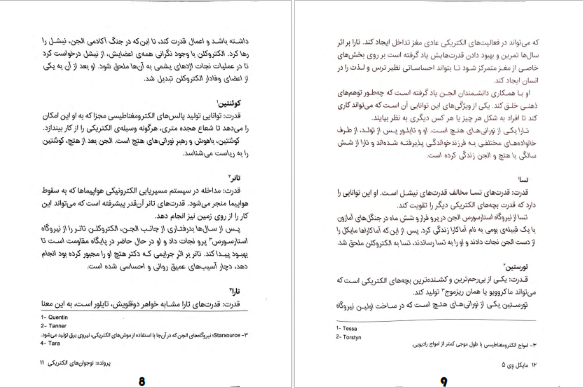 داشته باشد و اعمال قدرت کند، تا این‌که در جنگ آکادمی الجن، نیشل را
رها کرد. الکتروکلن با وجود نگرانی همه‌ی اعضایش، از نیشل درخواست کرد
تا در عملیات نجات اژدهای یشمی به آن‌ها ملحق شود. او بعد از آن به یکی
از اعضای وفادار الکتروکلن تبدیل شد.
کوئنتین¹
قدرت: توانایی تولید پالس‌های الکترومغناطیسی مجزا که به او این امکان
را می‌دهد تا شعاع هجده متری، هرگونه وسیله‌ی الکتریکی را از کار بیندازد.
کوئنتین، باهوش و رهبر نورانی‌های هتچ است. الجن بعد از هتچ، کوئنتین
را به ریاست می‌شناسد.
تانر²
قدرت: مداخله در سیستم مسیریابی الکترونیکی هواپیماها که به سقوط
هواپیما منجر می‌شود. قدرت‌های تانر آن‌قدر پیشرفته است که می‌تواند این
کار را از روی زمین نیز انجام دهد.
پس از سال‌ها بدرفتاری از جانب الجن، الکتروکلن تانر را از نیروگاه
استارسورس³ پرو نجات داد و او در حال حاضر در پایگاه مقاومت است تا
بهبود پیدا کند. تانر بر اثر جرایمی که دکتر هتچ او را مجبور کرده بود انجام
دهد، دچار آسیب‌های عمیق روانی و احساسی شده است.
تارا⁴
قدرت: قدرت‌های تارا مشابه خواهر دوقلویش، تایلور است، به این معنا
1- Quentin
2- Tanner
۳- Starsource: نیروگاه‌های الجن که در آن‌جا با استفاده از موش‌های الکتریکی، نیروی برق تولید می‌شود.
4- Tara
پرونده: نوجوان‌های الکتریکی ۱۱
8
که می‌تواند در فعالیت‌های الکتریکی عادی مغز تداخل ایجاد کند. تارا بر اثر
سال‌ها تمرین و بهبود دادن قدرت‌هایش یاد گرفته است بر روی بخش‌های
خاصی از مغز متمرکز شود تا بتواند احساساتی نظیر ترس و لذت را در
انسان ایجاد کند.
او با همکاری دانشمندان الجن یاد گرفته است که چه‌طور توهم‌های
ذهنی خلق کند. یکی از ویژگی‌های این توانایی آن است که می‌تواند کاری
کند تا افراد به شکل هر چیز یا هر کس دیگری به نظر بیایند.
تارا یکی از نورانی‌های هتچ است. او و تایلور پس از تولد، از طرف
خانواده‌های مختلفی به فرزندخواندگی پذیرفته شده‌اند و تارا از شش
سالگی با هتچ و الجن زندگی کرده است.
تسا¹
قدرت: قدرت‌های تسا مخالف قدرت‌های نیشل است. او این توانایی را
دارد که قدرت بچه‌های الکتریکی دیگر را تقویت کند.
تسا از نیروگاه استارسورس الجن در پرو فرار و شش ماه در جنگل‌های آمازون
با یک قبیله‌ی بومی به نام آماکارا زندگی کرد. پس از این که آماکاراها مایکل را
از دست الجن نجات دادند و او را به تسا رساندند، تسا به الکتروکلن ملحق شد.
تورستین²
قدرت: یکی از بی‌رحم‌ترین و کشنده‌ترین بچه‌های الکتریکی است که
می‌تواند ماکروویو یا همان ریزموج³ تولید کند.
تورستین یکی از نورانی‌های هتچ است که در ساخت اولین نیروگاه
1- Tessa
2- Torstyn
۳- امواج الکترومغناطیسی با طول موجی کمتر از امواج رادیویی.
۱۲ مایکل وی ۵
9